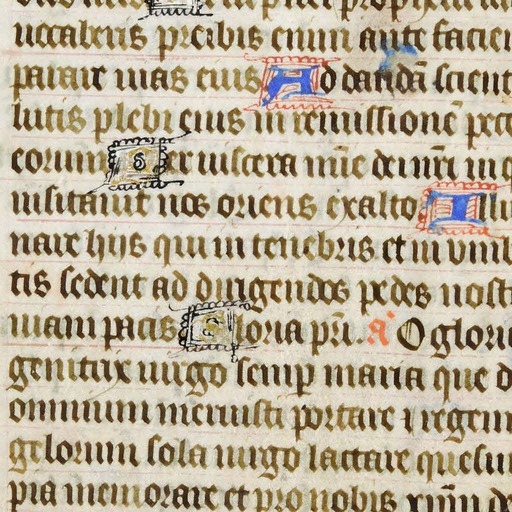 uocaberis preibis enim ante faciem
parare uias eius Ad dandā scient
lutis plebi eius in remissionē pecc
eorum Per uiscera mīe dei nr̄i in q
uisitauit nos oriens exalto Illu
nare hijs qui in tenebris et in vmb
tis sedent ad dirigendos pedes nost
uiam pacis Gloria pr̄i. a O glori
genitrix uirgo semp maria que d
omnium meruisti portare ⁊ regem
gelorum sola uirgo lactare quesu
pia memorare et pro nobis xp̄m de